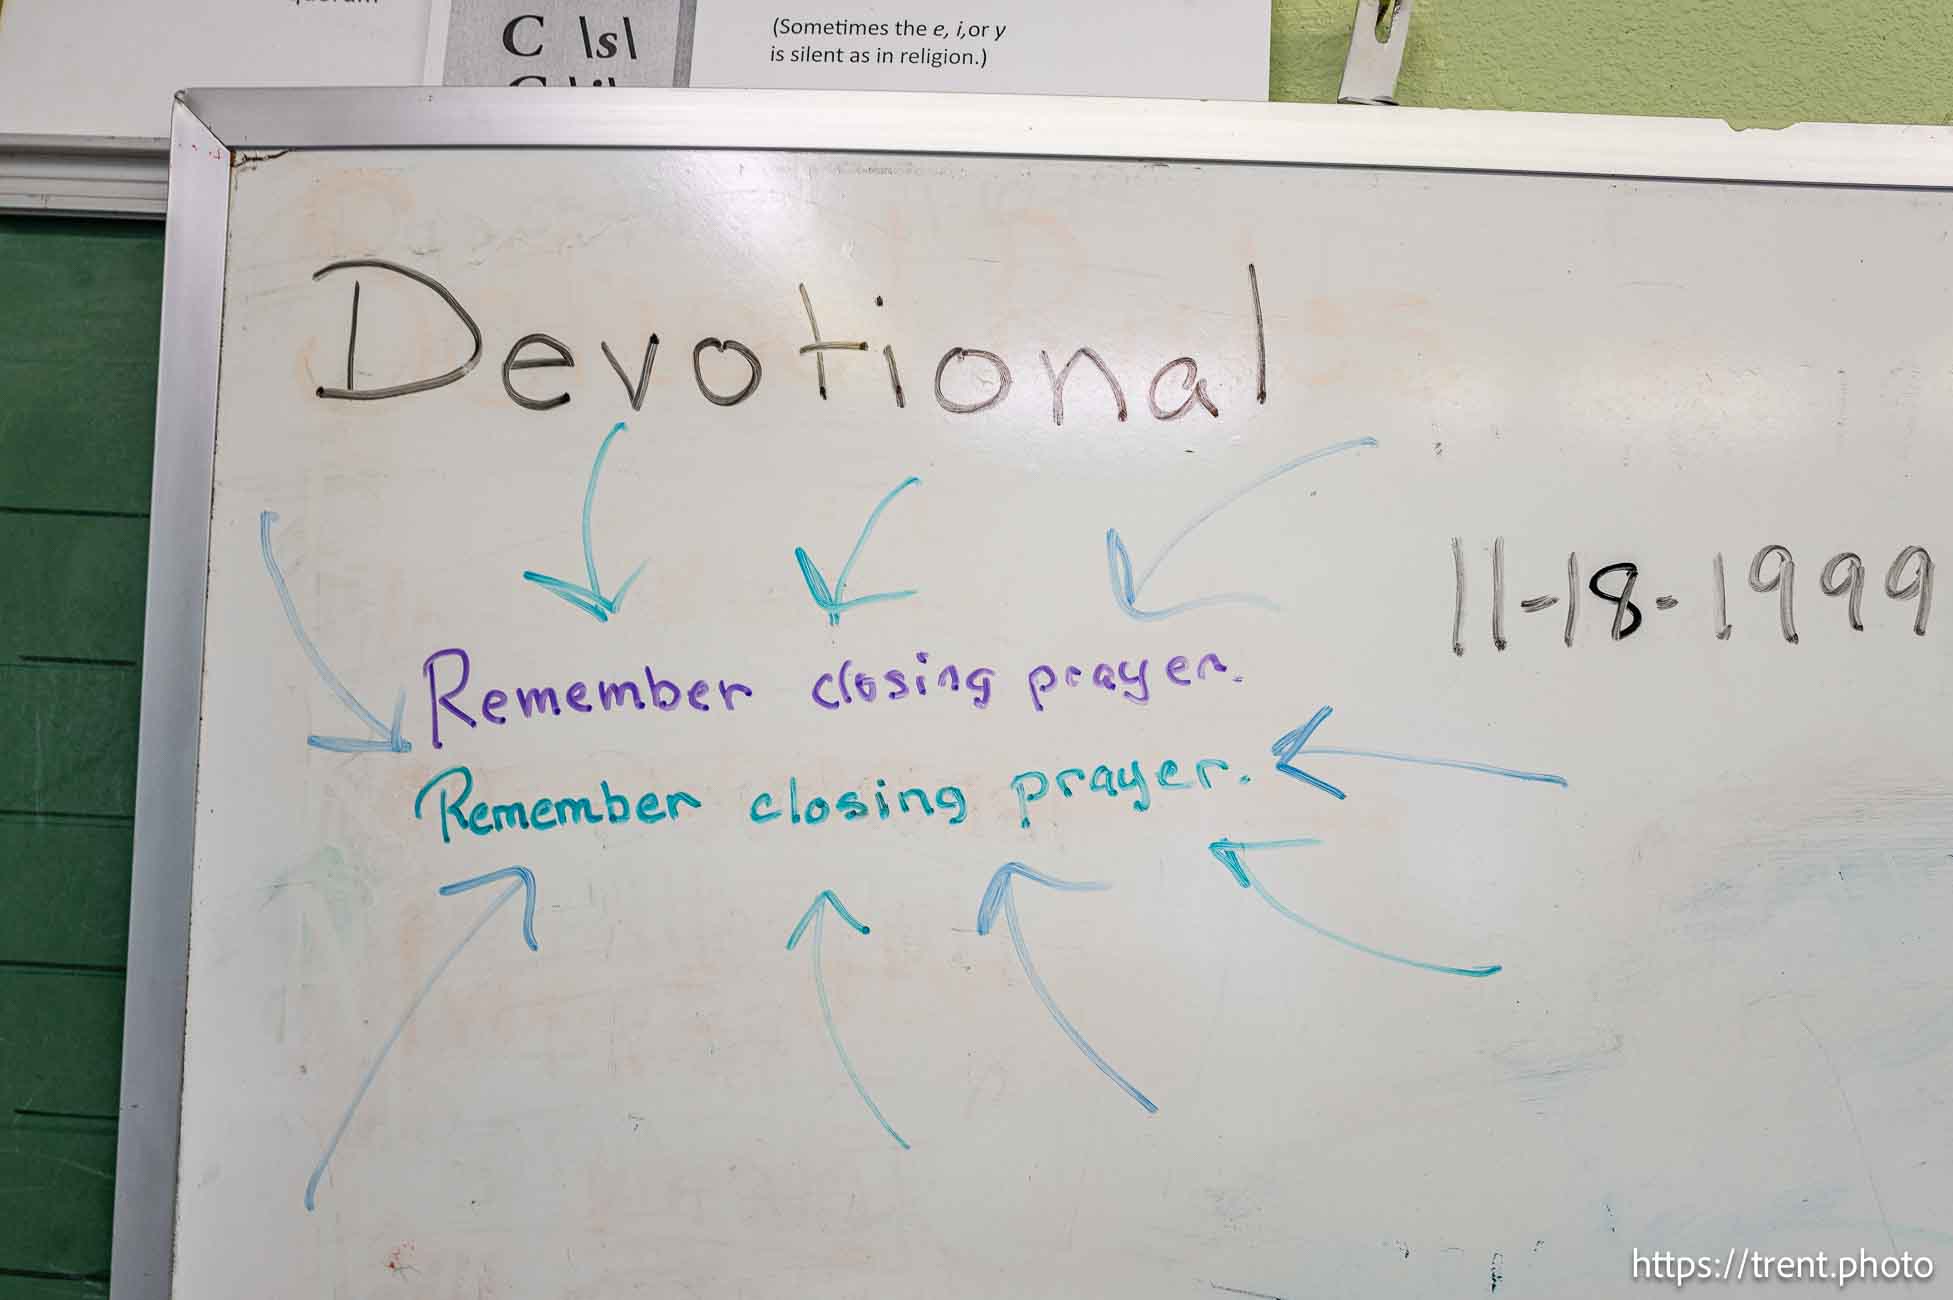 C \s\
(Sometimes the e, i,or y
is silent as in religion.)
Devotional
11-18-1999
Remember closing prayer.
Remember closing prayer.
https://trent.photo